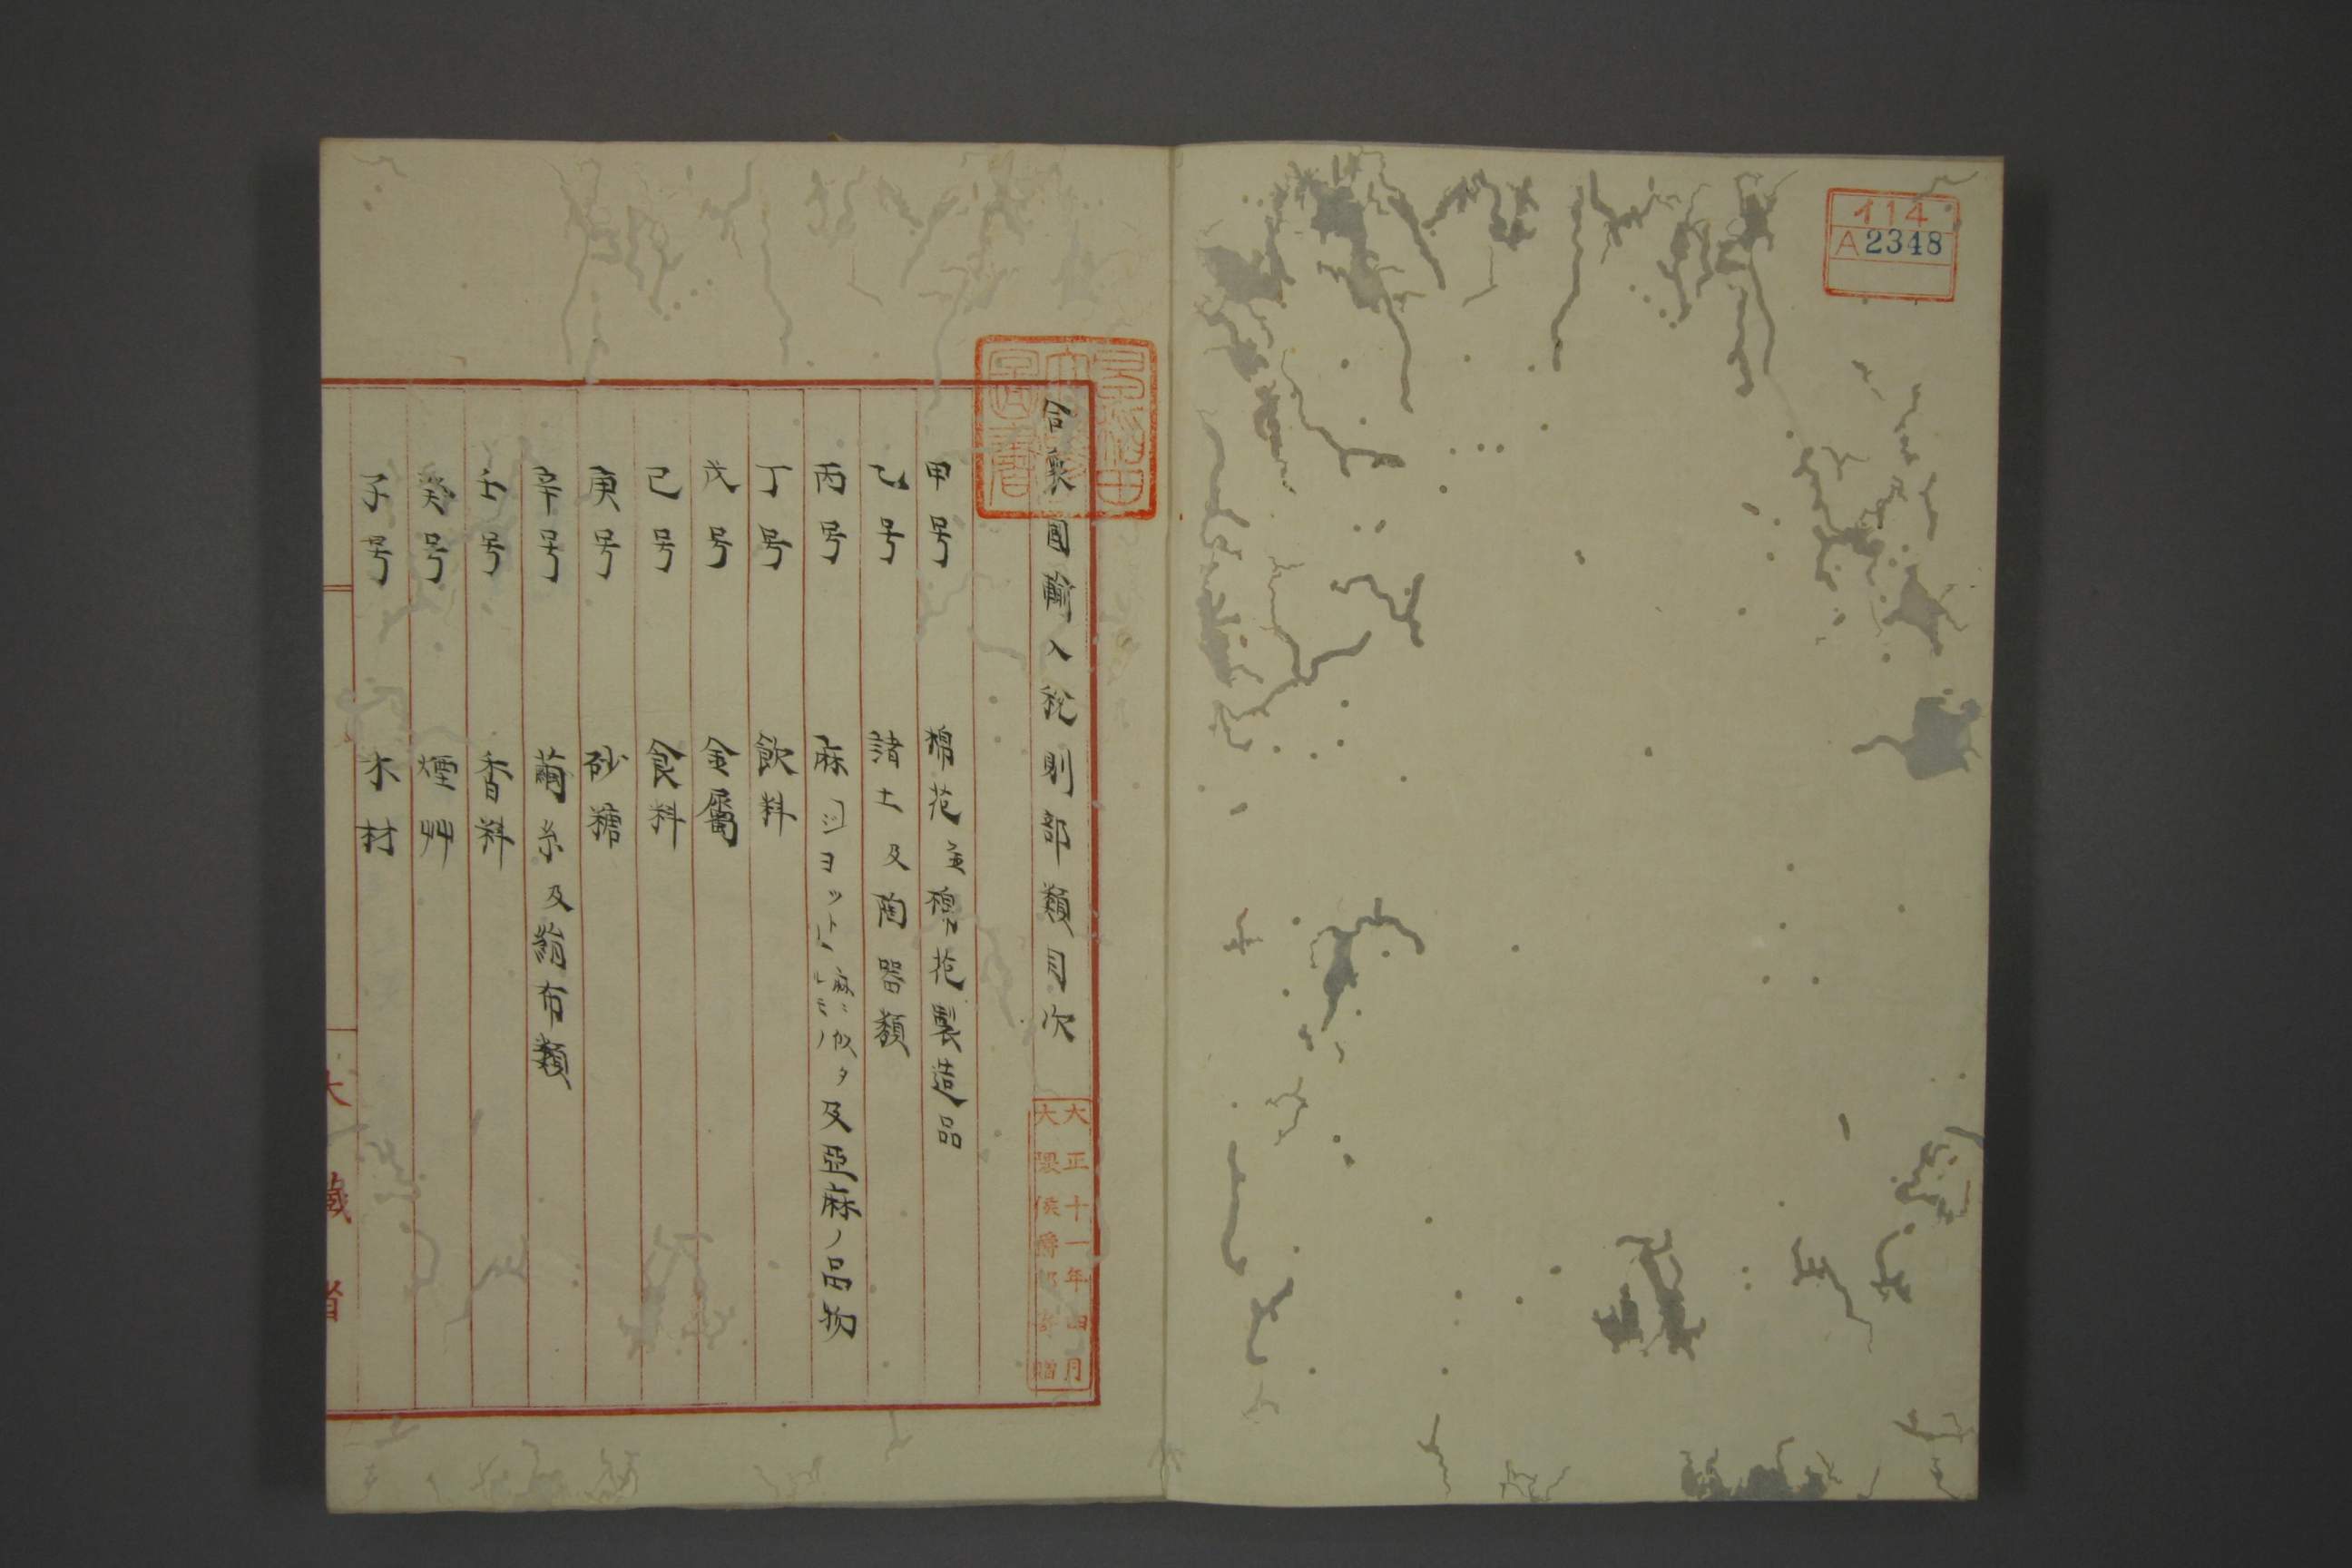 イ14
A2348
早稲田大学図書
合衆國輸入税則部類目次
大正十一年四月
大隈侯爵邸寄贈
甲号 棉花並棉花製造品
乙号 諸土及陶器類
丙号 麻ヨヨット麻ニ似タルモノ及亞麻ノ品物
丁号 飲料
戊号 金屬
己号 食料
庚号 砂糖
辛号 繭糸及絹布類
壬号 香料
癸号 煙艸
子号 木材
大藏省